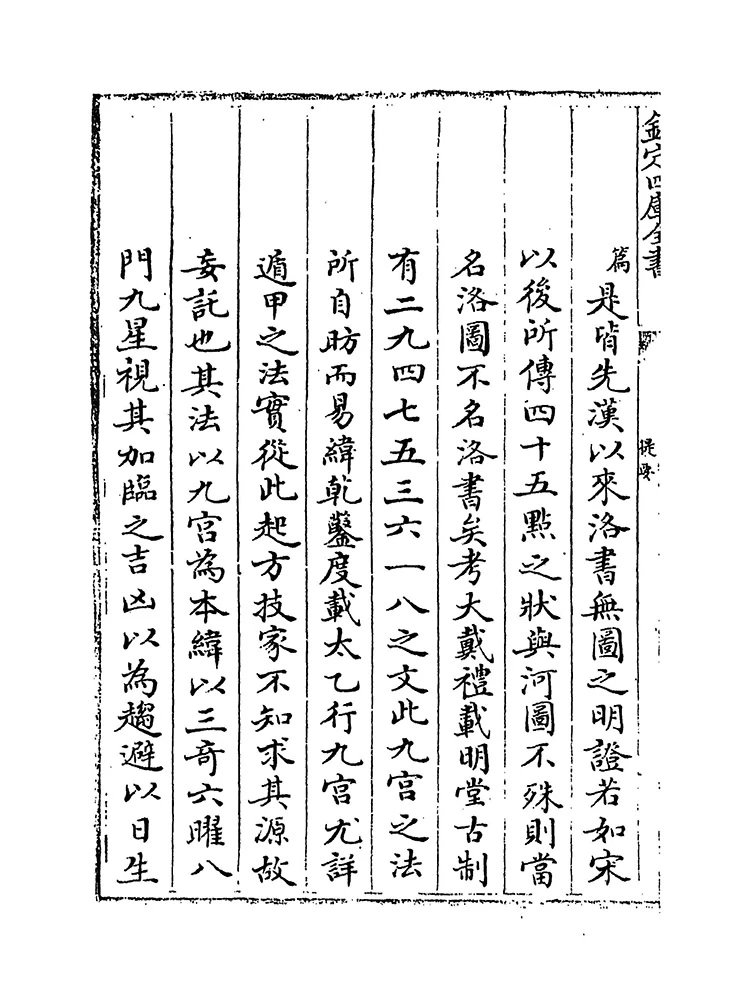 欽定四庫全書
提要
篇是皆先漢以來洛書無圖之明證若如宋
以後所傳四十五點之狀與河圖不殊則當
名洛圖不名洛書矣考大戴禮載明堂古制
有二九四七五三六一八之文此九宮之法
所自昉而易緯乾鑿度載太乙行九宮尤詳
遁甲之法實從此起方技家不知求其源故
妄託也其法以九宮為本緯以三奇六曜八
門九星視其加臨之吉凶以為趨避以日生